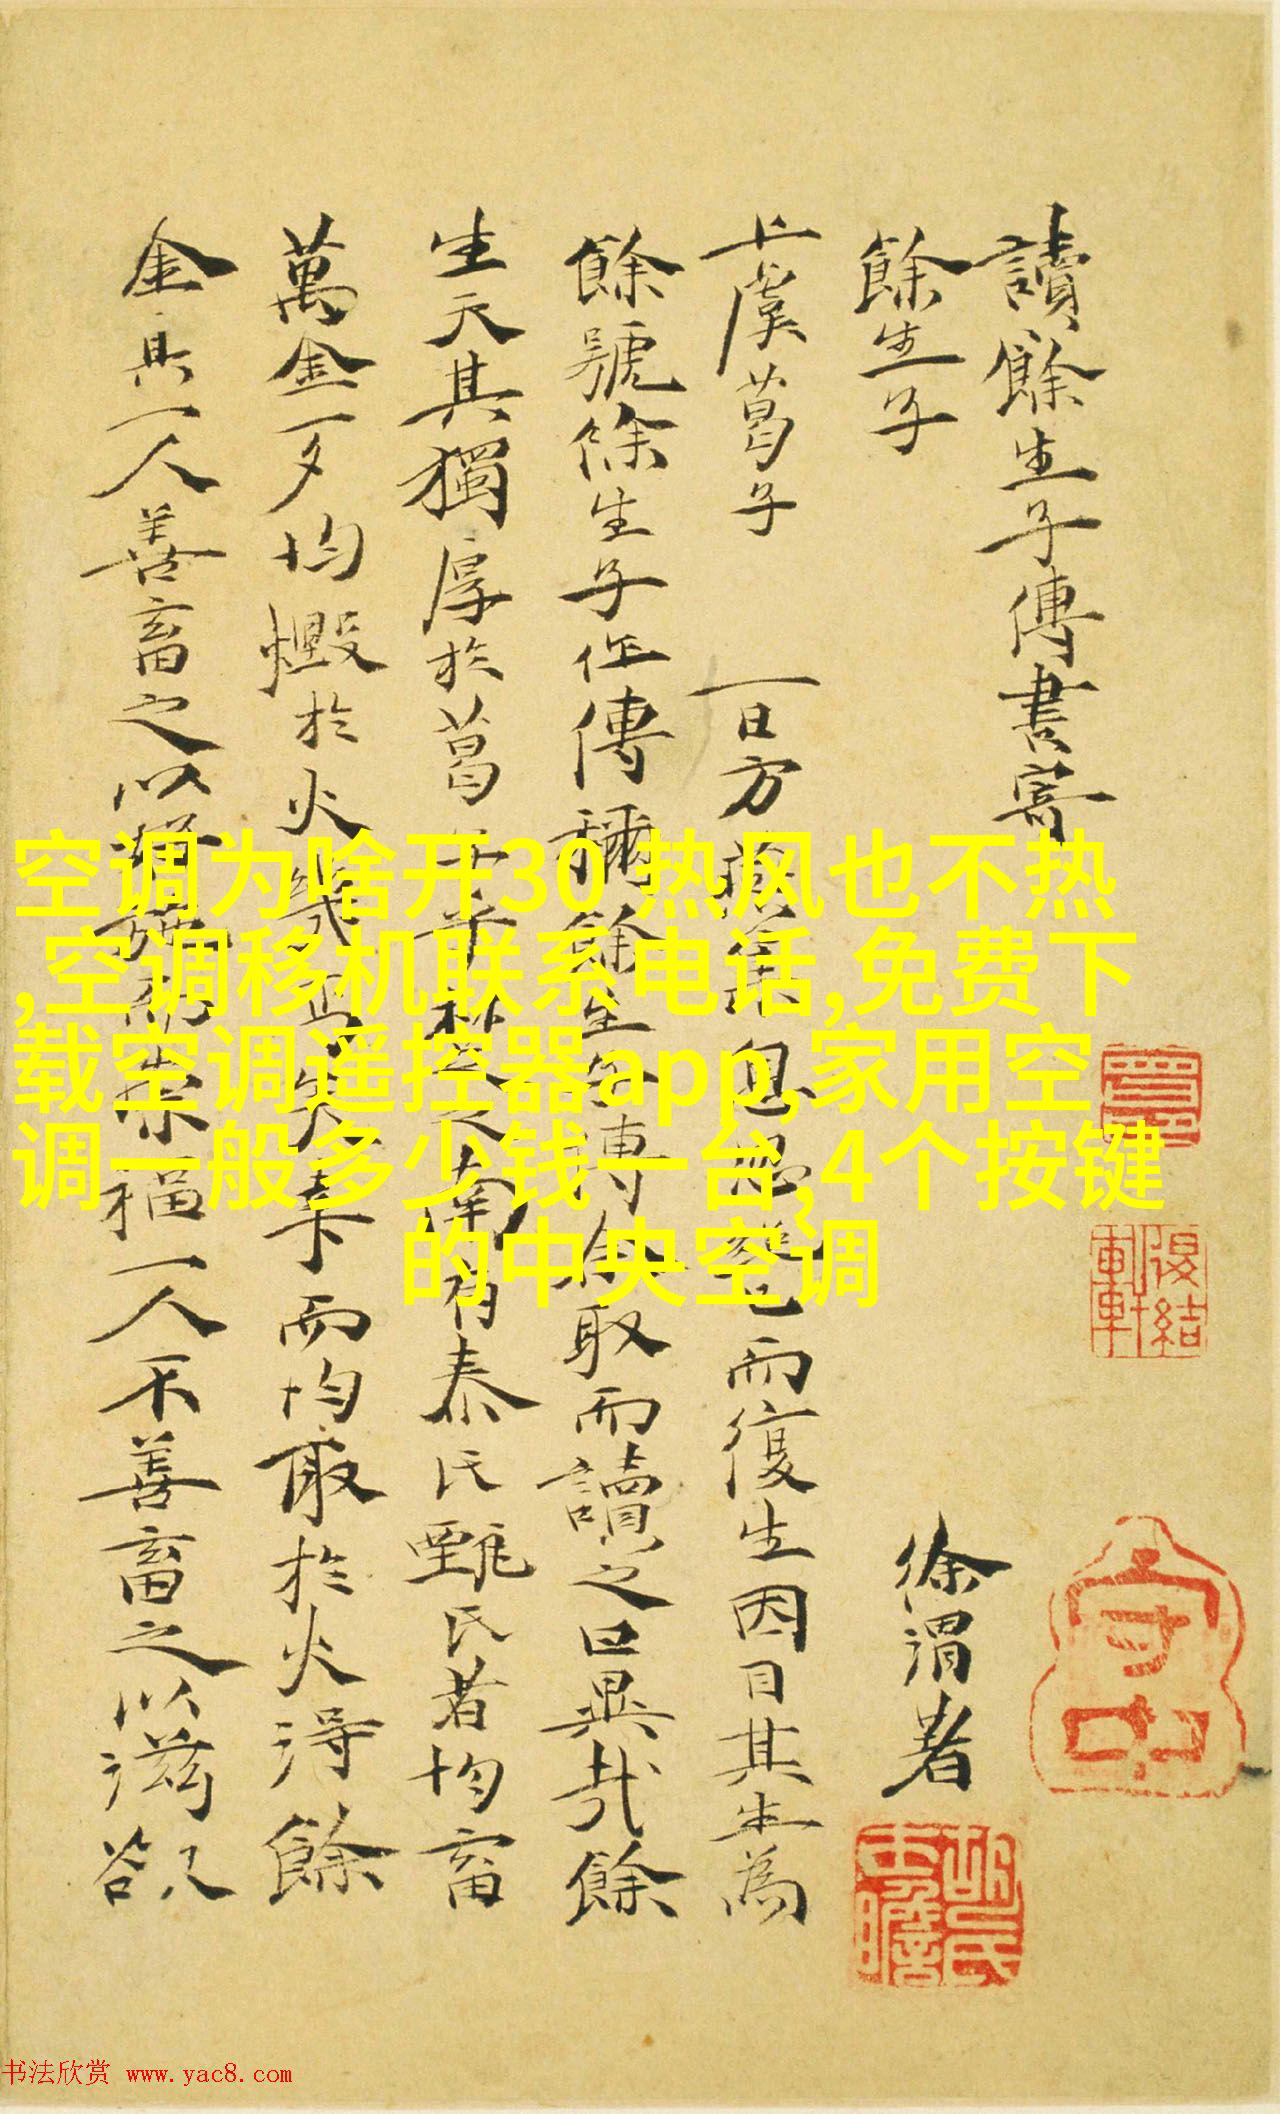 讀餘生子傳書寄
餘生子
徐渭著
上虞葛子 一日方集而復生因目其生為
餘號餘生子任傳稱餘生子傳余取而讀之曰異哉餘
生天其獨厚於葛子乎之南有秦氏甄氏者均畜
萬金一夕均燬於火幾失幸而均取於火得餘
金其一人善畜之以施而崇福一人不善畜之以滋欲
空调为啥开30 热风也不热
,空调移机联系电话,免费下
载空调遥控器app,家用空
调一般多少钱一台,4个按键
的中央空调
书法欣赏 www.yac8.com